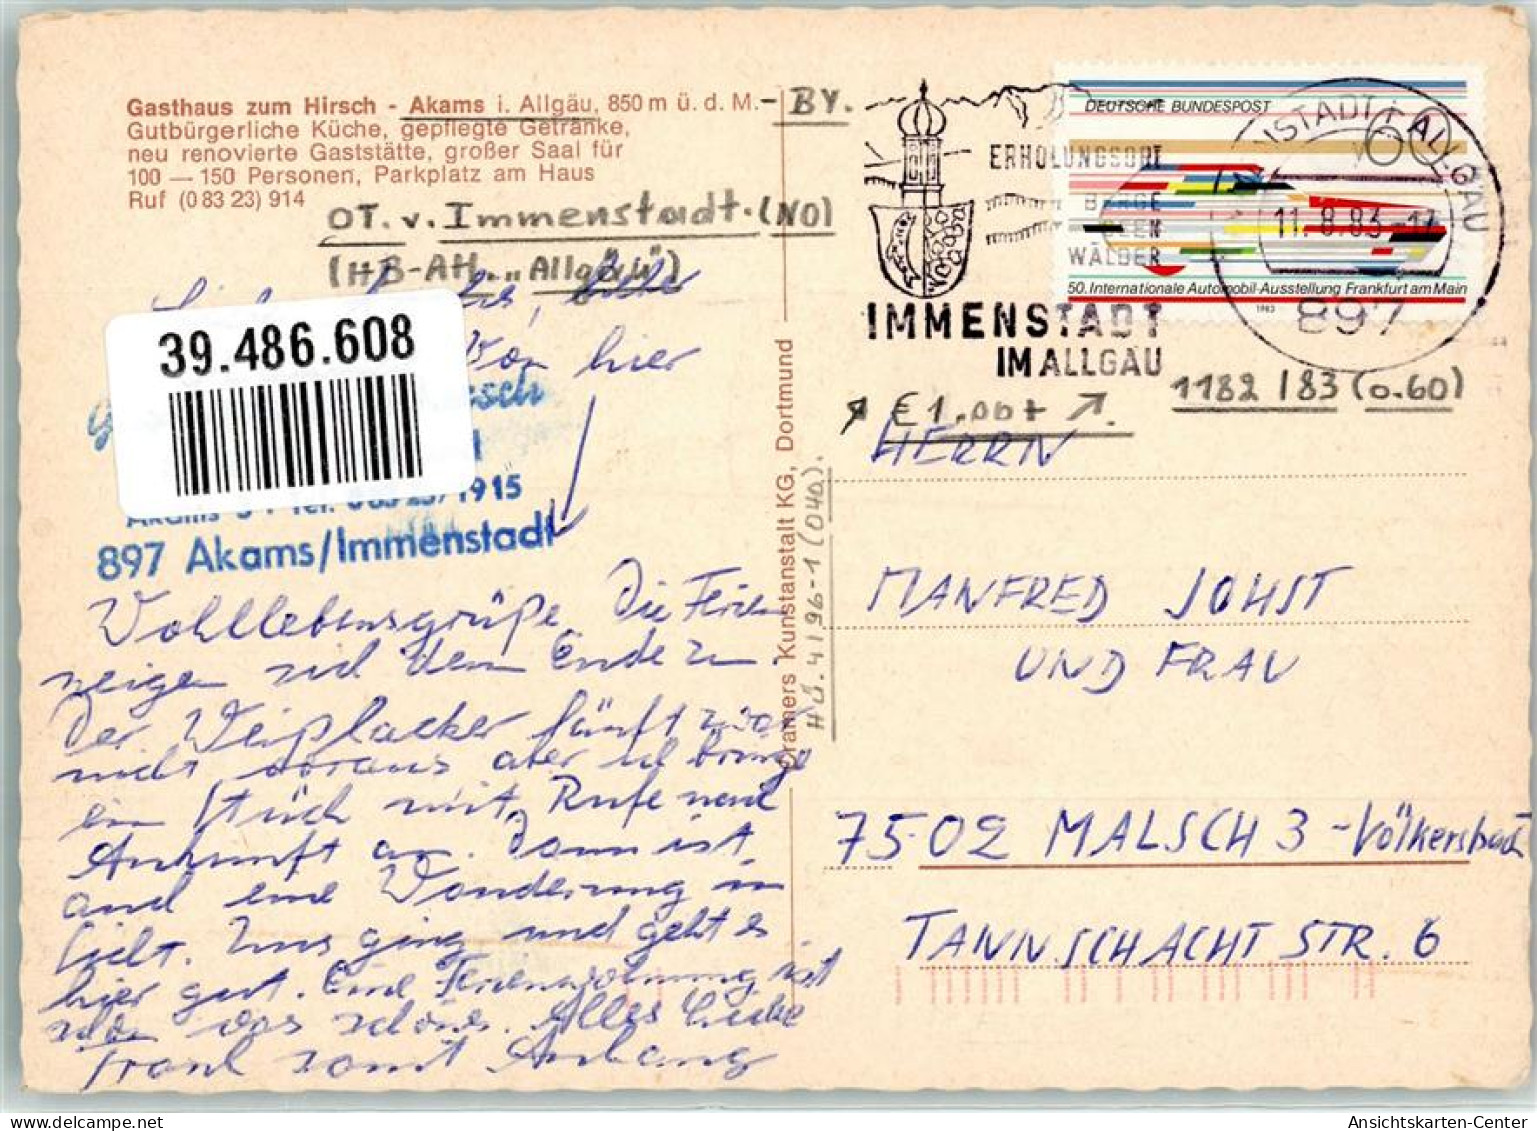 Gasthaus zum Hirsch - Akams i. Allgäu, 850 m ü. d. M. - BY.
Gutbürgerliche Küche, gepflegte Getränke,
neu renovierte Gaststätte, großer Saal für
100 — 150 Personen, Parkplatz am Haus
Ruf (0 83 23) 914
OT. v. Immenstadt. (NO)
(HB-AH. "Allgäu")
von hier
39.486.608
897 Akams/Immenstadt
Wohllebensgrüße. Die Ferien
neigen sich dem Ende zu.
Der Weißlacker läuft zwar
nicht voraus aber ich bringe
ein Stück mit. Rufe nach
Ankunft an. Dann ist
auch eine Wanderung in
Sicht. Uns ging und geht es
hier gut. Eine Ferienwohnung ist
schon was schönes. Alles Liebe
Frank samt Anhang
Cramers Kunstanstalt KG, Dortmund
HÜ. 4196-1 (040).
ERHOLUNGSORT
BERGE
SEEN
WÄLDER
IMMENSTADT
IM ALLGÄU
DEUTSCHE BUNDESPOST
60
50. Internationale Automobil-Ausstellung Frankfurt am Main
1983
IMMENSTADT i. ALLGÄU
11.8.83-17
897
1182 / 83 (0.60)
€ 1.00+
HERRN
MANFRED JOHST
UND FRAU
7502 MALSCH 3 - Völkersbach
TANNSCHACHTSTR. 6
Ansichtskarten-Center